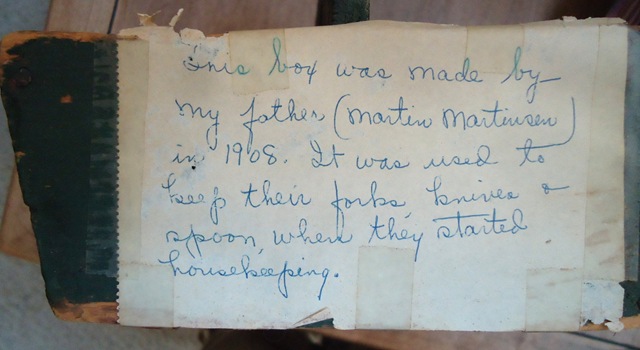 This box was made by
my father (Martin Martinsen)
in 1908. It was used to
keep their forks, knives &
spoon, when they started
housekeeping.